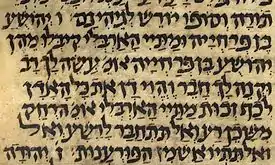 תורה וסופו יורש לגיהינם ו יהושע
בן פרחייה ומתיי הארבלי קיבלו מהן
יהושע בן פרחייה אומ עשה לך רב
וקנה לך חבר והוי דן את כל האדן
לכף זכות מתיי הארבלי אומ הרחק
משכן רע ואל תתחבר לרשע ואל
ואל תתייאש מן הפורענות ז יהודה